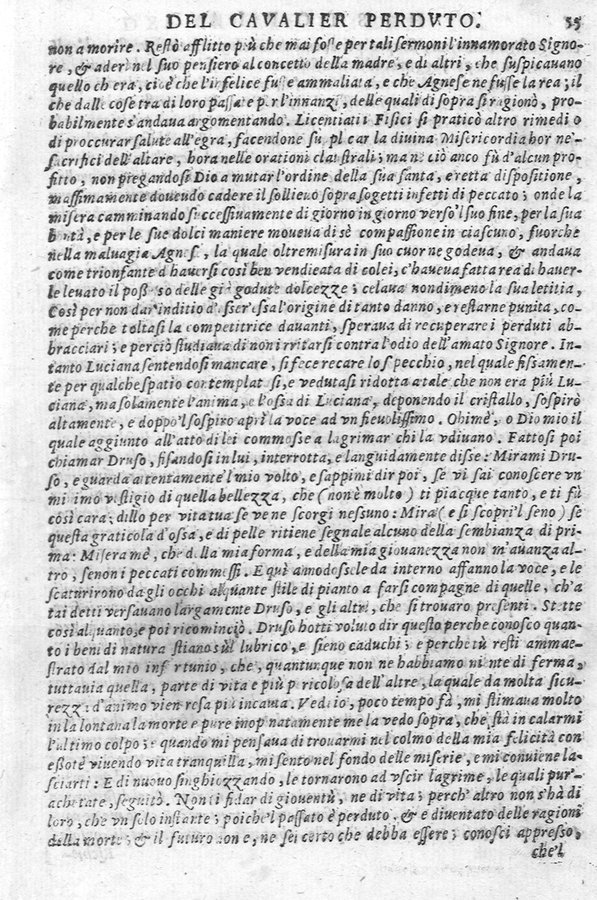 DEL CAVALIER PERDVTO. 55
non a morire. Restò afflitto più che mai fosse per tali sermoni l'innamorato Signo-
re, & aderì nel suo pensiero al concetto della madre, e di altri, che suspicauano
quello ch'era, cioè che l'infelice fusse ammaliata, e che Agnese ne fusse la rea; il
che dalle cose tra di loro passate per l'innanzi, delle quali di sopra si ragionò, pro-
babilmente s'andaua argomentando. Licentiati i Fisici si praticò altro rimedio
di proccurar salute all'egra, facendone supplicar la diuina Misericordia hor ne'
sacrifici dell'altare, hora nelle orationi claustrali; ma nè ciò anco fù d'alcun pro-
fitto, non pregandosi Dio a mutar l'ordine della sua santa, e retta dispositione,
massimamente douendo cadere il sollieuo sopra sogetti infetti di peccato; onde la
misera camminando successiuamente di giorno in giorno verso'l suo fine, per la sua
bontà, e per le sue dolci maniere moueua di sè compassione in ciascuno, fuorche
nella maluagia Agnese, la quale oltremisura in suo cuor ne godeua, & andaua
come trionfante d'hauersi così ben vendicata di colei, c'haueua fatta rea di hauer-
le leuato il possesso delle già godute dolcezze; celaua nondimeno la sua letitia,
Così per non dar inditio d'esser essa l'origine di tanto danno, e restarne punita, co-
me perche toltasi la competitrice dauanti, speraua di recuperare i perduti ab-
bracciari; e perciò studiaua di non irritarsi contra l'odio dell'amato Signore. In-
tanto Luciana sentendosi mancare, si fece recare lo specchio, nel quale fissamen-
te per qualche spatio contemplatasi, e vedutasi ridotta a tale che non era più Lu-
ciana, ma solamente l'anima, e l'ossa di Luciana, deponendo il cristallo, sospirò
altamente, e doppo'l sospiro aprì la voce ad vn fieuolissimo. Ohimè, o Dio mio il
quale aggiunto all'atto di lei commosse a lagrimar chi la vdiuano. Fattosi poi
chiamar Druso, fisandosi in lui, interrotta, e languidamente disse: Mirami Dru-
so, e guarda attentamente'l mio volto, e sappimi dir poi, se vi sai conoscere vn
minimo vestigio di quella bellezza, che (non è molto) ti piacque tanto, e ti fù
così cara; dillo per vita tua se ve ne scorgi nessuno: Mira (e si scoprì'l seno) se
questa graticola d'ossa, e di pelle ritiene segnale alcuno della sembianza di pri-
ma: Misera mè, che della mia forma, e della mia giouanezza non m'auanza al-
tro, se non i peccati commessi. E quì annodossele da interno affanno la voce, e le
scaturirono da gli occhi alquante stile di pianto a farsi compagne di quelle, ch'a
tai detti versauano largamente Druso, e gli altri, che si trouaro presenti. Stette
così alquanto, e poi ricominciò. Druso hotti voluto dir questo perche conosco quan-
to i beni di natura stiano sul lubrico, e sieno caduchi; e perche tù resti ammae-
strato dal mio infortunio, che, quantunque non ne habbiamo niente di ferma,
tuttauia quella, parte di vita e più pericolosa dell'altre, la quale da molta sicu-
rezza d'animo vien resa più incauta. Vedi tò, poco tempo fà, mi stimaua molto
in là lontana la morte e pure inopinatamente me la vedo sopra, che stà in calarmi
l'ultimo colpo: e quando mi pensaua di trouarmi nel colmo della mia felicità con
esso tè viuendo vita tranquilla, mi sento nel fondo delle miserie, e mi conuiene la-
sciarti: E di nuouo singhiozzando, le tornarono ad vscir lagrime, le quali pur'
achetate, seguitò. Non ti fidar di giouentù, ne di vita; perch'altro non s'hà di
loro, che vn solo instante; poiche'l passato è perduto, & e diuentato delle ragioni
della morte; & il futuro non e, ne sei certo che debba essere; conosci appresso,
che'l